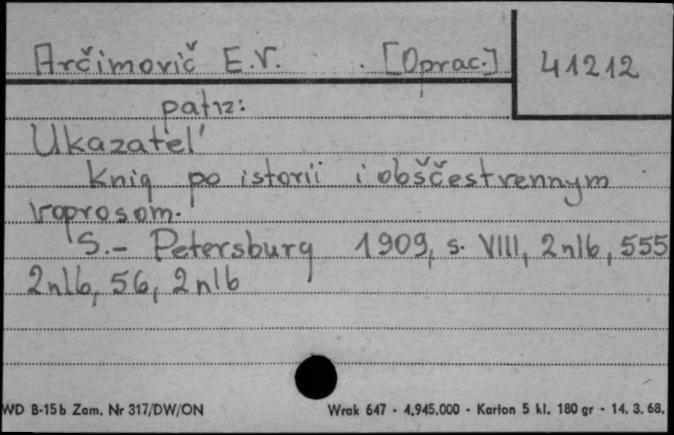 Arčimovič E.V. [Oprac.] 41212
patrz:
Ukazatel'
knig po istorii i obščestvennym
voprosom.
S.- Petersburg 1909, s. VIII, 2nlb, 555
2nlb, 56, 2nlb
WD B-15b Zam. Nr 317/DW/ON Wrak 647 - 4.945.000 - Karton 5 kl. 180 gr - 14. 3. 68.